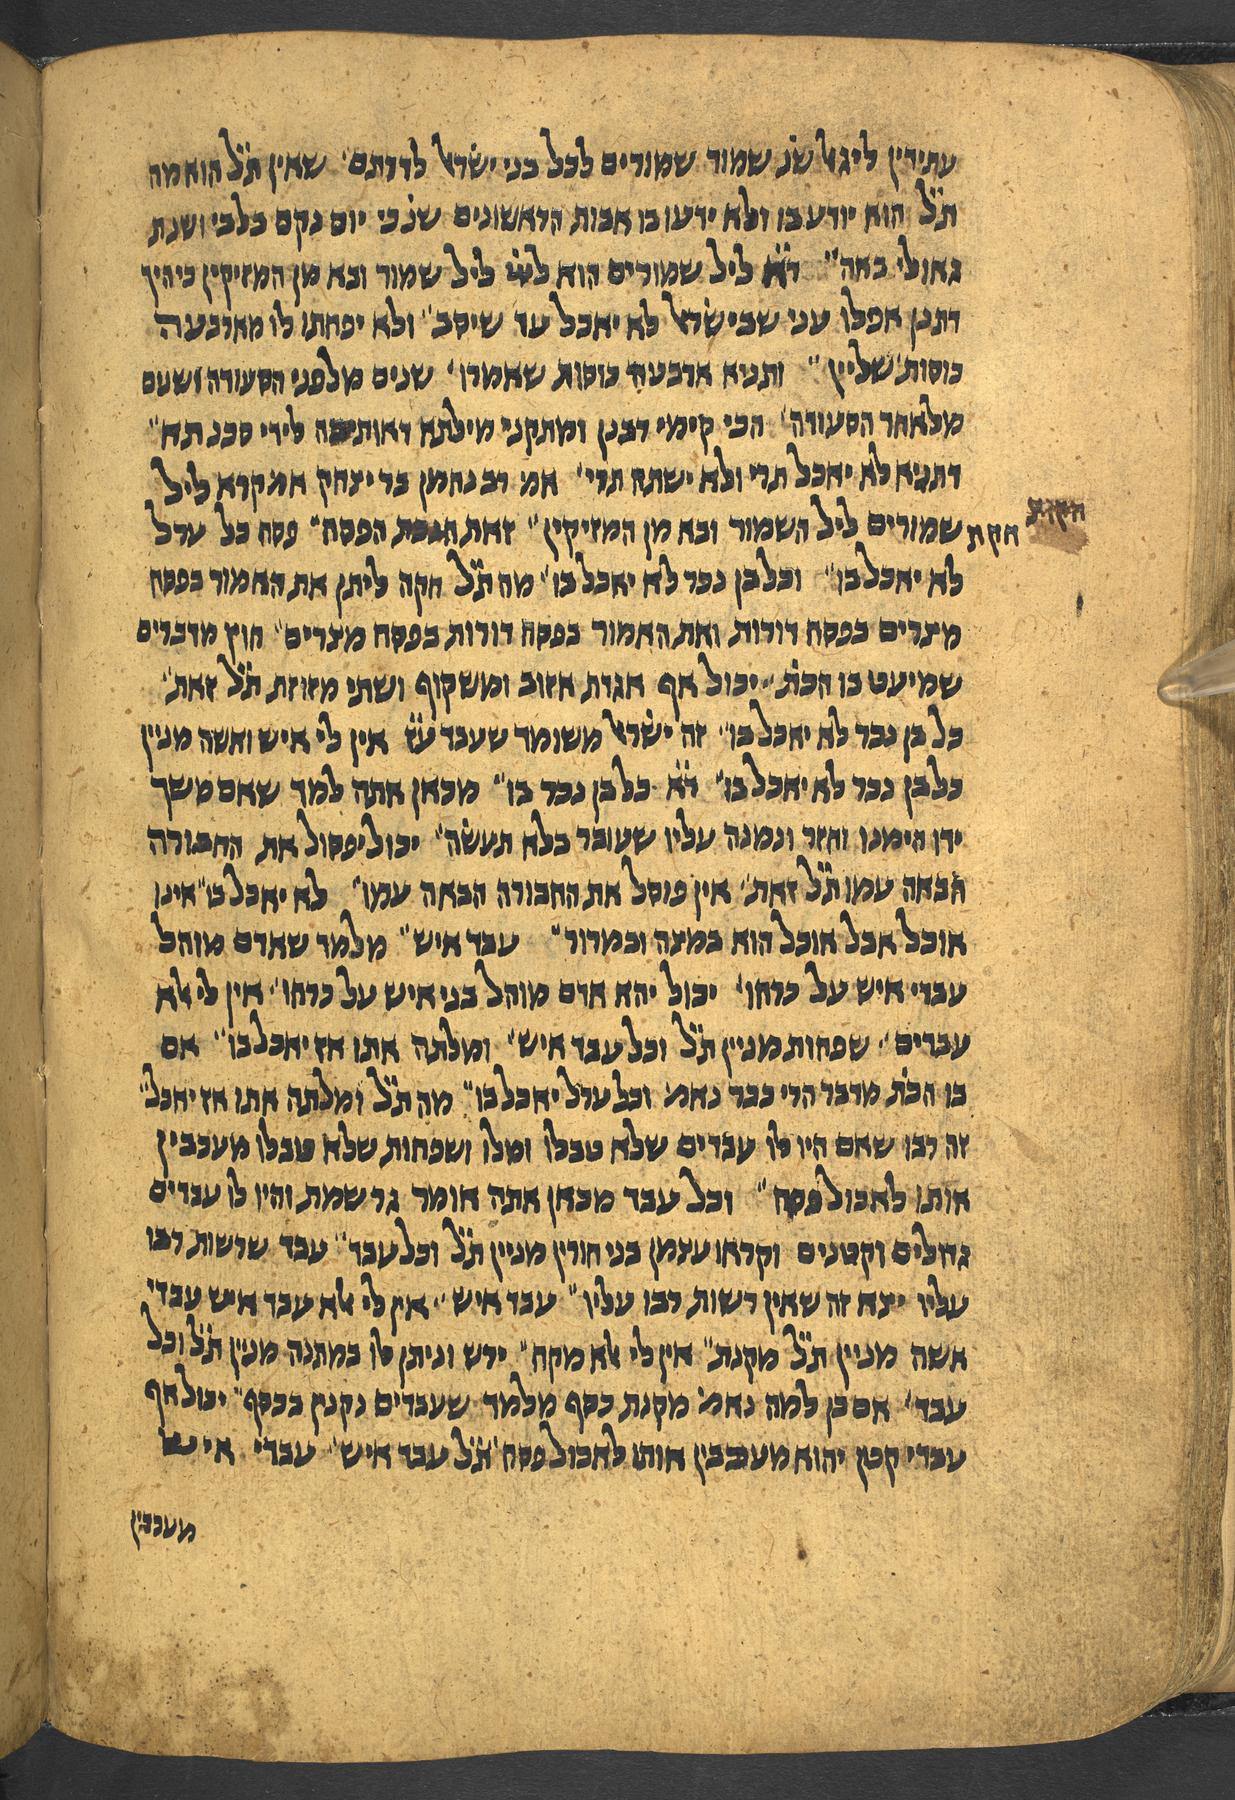 עתידין ליגאל שנ׳ שמור שמורים לכל בני ישראל לדרתם׳ שאין ת״ל הוא מה
ת״ל הוא יודע בו ולא ידעו בו אבות הראשונים שנ׳ כי יום נקם בלבי ושנת
גאולי באה״ ד״א ליל שמורים הוא ליי׳ ליל שמור ובא מן המזיקין כיהיך
דתנן אפלו עני שבישראל לא יאכל עד שיסב״ ולא יפחתו לו מארבעה
כוסות׳ שליין״ ותניא ארבעה כוסות שאמרו׳ שנים מלפני הסעודה ושנים
מלאחר הסעודה׳ הכי קימי רבנן ומתקני מילתא דאותיבה לידי סכנתא״
דתניא לא יאכל תרי ולא ישתה תרי׳ אמ׳ רב נחמן בר יצחק אמ קרא ליל
שמורים ליל השמור ובא מן המזיקין״ זאת חוקת הפסח״ פסח כל ערל
חקת
לא יאכל בו״ וכל בן נכר לא יאכל בו״ מה ת״ל חקה ליתן את האמור בפסח
מצרים בפסח דורות ואת האמור בפסח דורות בפסח מצרים״ חוץ מדברים
שמיעט בו הכת׳ יכול אף אגדת אזוב ומשקוף ושתי מזוזת ת״ל זאת׳
כל בן נכר לא יאכל בו״ זה ישראל משומד שעבד ע״ז אין לי איש ואשה מניין
כל בן נכר לא יאכל בו״ ד״א כל בן נכר בו״ מכאן אתה למד שאם משך
ידו הימנו וחזר ונמנה עליו שעובר בלא תעשה״ יכול יפסול את החבורה
הבאה עמו ת״ל זאת׳ אין פוסל את החבורה הבאה עמו״ לא יאכל בו״ אינו
אוכל אבל אוכל הוא במצה ובמרור״ עבד איש״ מלמד שאדם מוהל
עבדי איש על כרחו׳ יכול יהא אדם מוהל בני איש על כרחו׳ אין לי אלא
עבדים׳ שפחות מניין ת״ל וכל עבד איש׳ ומלתה אתו אז יאכל בו״ אם
בו הכת׳ מדבר הרי כבר נאמ׳ וכל ערל יאכל בו״ מה ת״ל ומלתה אתו אז יאכל״
זה רבו שאם היו לו עבדים שלא טבלו ומלו ושפחות שלא טבלו מעכבין
אותו לאכול פסח״ וכל עבד מכאן אתה אומר גר שמת והיו לו עבדים
גדולים וקטנים וקראו עצמן בני חורין מניין ת״ל וכל עבד״ עבד שרשות רבו
עליו יצא זה שאין רשות רבו עליו״ עבד איש״ אין לי אלא עבד איש עבדי
אשה מניין ת״ל מקנת״ אין לי אלא מקח״ ירש וניתן לו במתנה מנין ת״ל וכל
עבד׳ אם כן למה נאמ׳ מקנת כסף מלמד שעבדים נקנין בכסף׳ יכול אף
עבדי קטן יהוא מעכבין אותו לאכול פסח׳ ת״ל עבד איש׳ עבדי איש
מעכבין